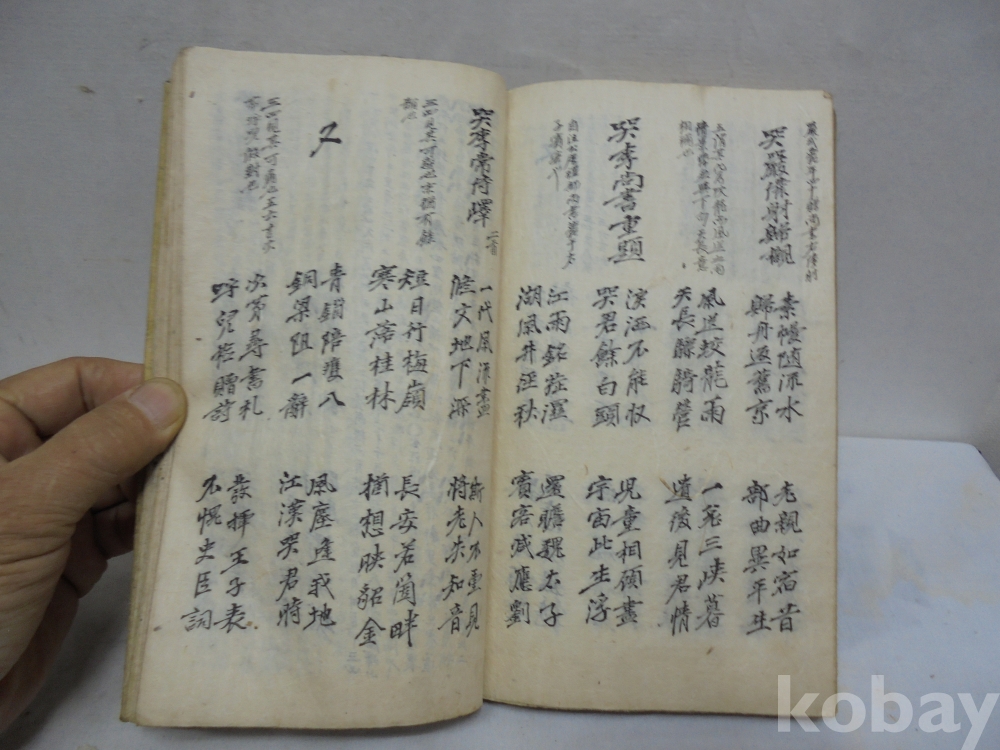 哭嚴僕射歸櫬
素幔隨流水
歸舟返舊京
老親如宿昔
部曲異平生
風送蛟龍雨
天長驃騎營
一哀三峽暮
遺後見君情
哭李尚書重題
涕洒不能收
哭君餘白頭
兒童相顧盡
宇宙此生浮
江雨銘旌濕
湖風井逕秋
還瞻魏太子
賓客減應劉
哭李常侍嶧 二首
一代風流盡
修文地下深
斯人不重見
將老失知音
短日行梅嶺
寒山落桂林
長安若箇畔
猶想映貂金
又
青瑣陪雙入
銅梁阻一辭
風塵逢我地
江漢哭君時
次第尋書札
呼兒檢贈詩
發揮王子表
不愧史臣詞
kobay